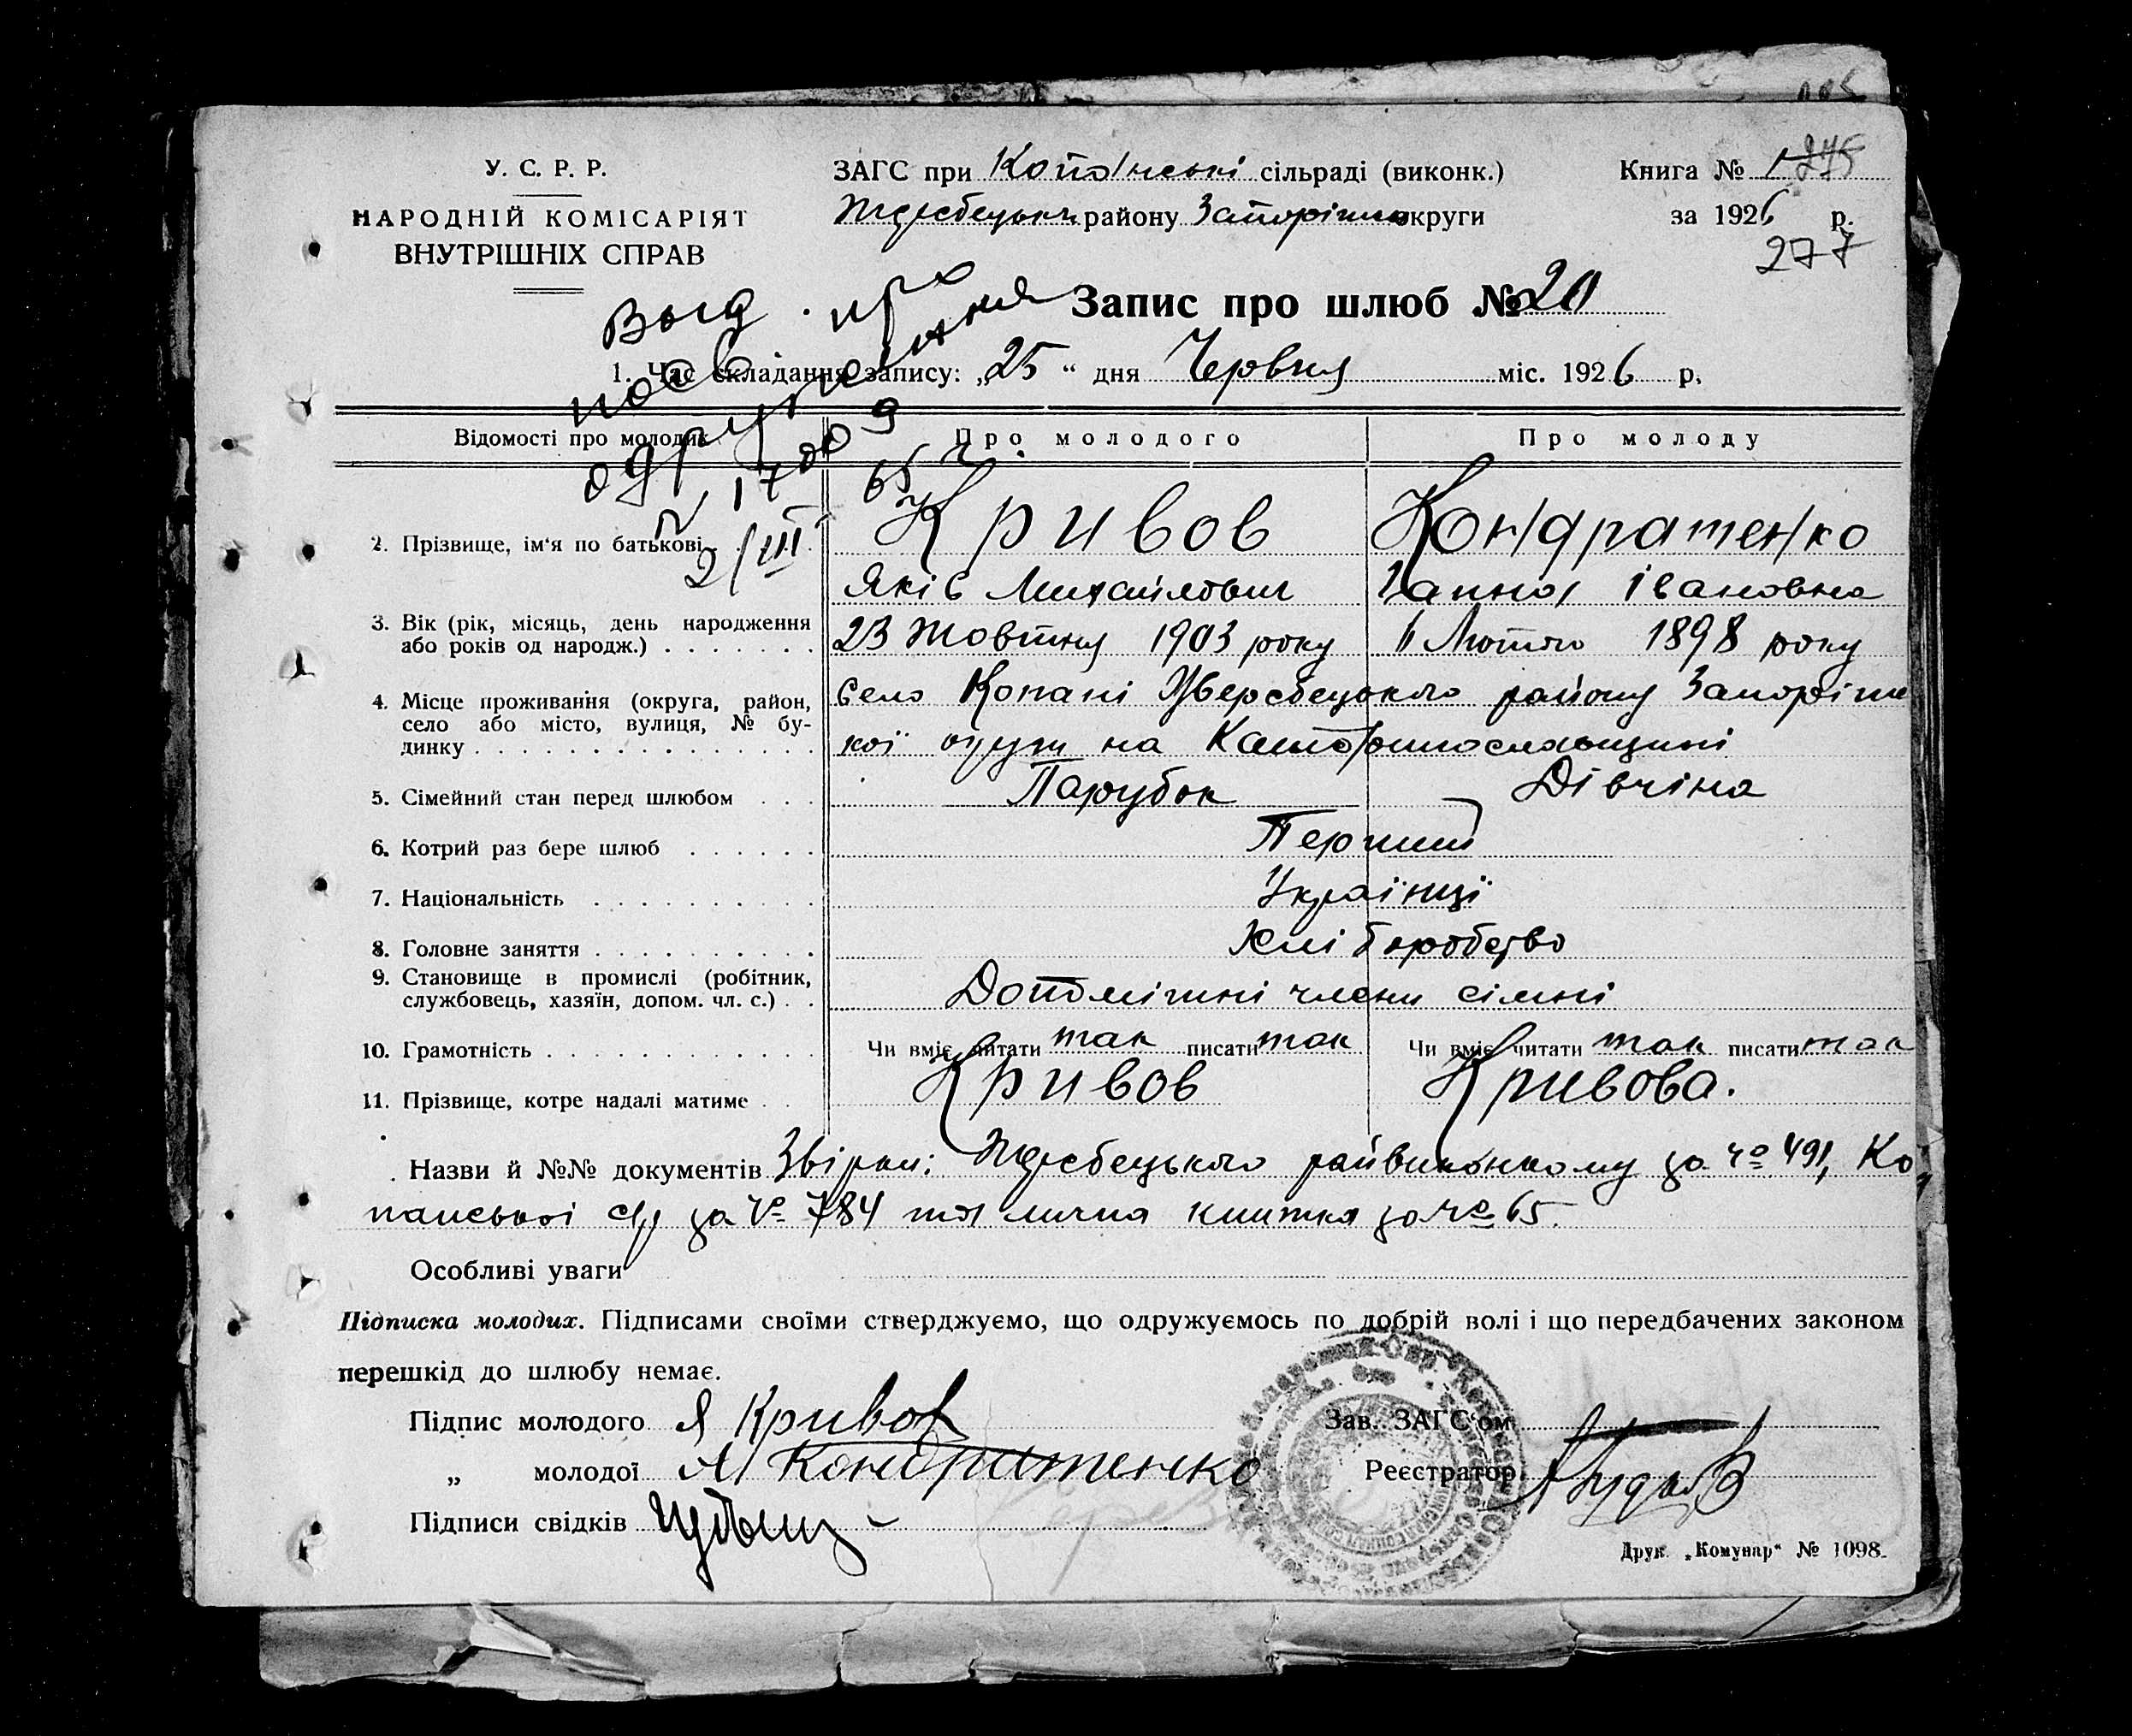 У. С. Р. Р.
НАРОДНІЙ КОМІСАРІЯТ
ВНУТРІШНІХ СПРАВ
ЗАГС при Копанські сільраді (виконк.)
району Запоріжськ округи
Книга № 1 275
за 1926 р.
277
Запис про шлюб № 20
1. Час складання запису: „25“ дня Червня міс. 1926 р.
Выд.
пов
одруження
65 г.
2/III
Відомості про молодих
Про молодого
Про молоду
2. Прізвище, ім'я по батькові
Кривов
Кондратенко
Яків Михайлович
Ганна Івановна
3. Вік (рік, місяць, день народження
або років од народж.)
23 Жовтня 1903 року
Лютого 1898 року
4. Місце проживання (округа, район,
село або місто, вулиця, № бу-
динку
Село Копані району Запоріж
кої на
5. Сімейний стан перед шлюбом
Парубок
Дівчина
6. Котрий раз бере шлюб
Перший
7. Національність
Українці
8. Головне заняття
Хліборобство
9. Становище в промислі (робітник,
службовець, хазяїн, допом. чл. с.)
Допоміжні члени сімні
10. Грамотність
Чи вміє читати так писати так
Чи вміє читати так писати так
11. Прізвище, котре надалі матиме
Кривов
Кривова.
Назви й №№ документів Звірки: райвиконкому за чо 491, Ко
панської с/р за чо 784 та лична книжка за чо 65.
Особливі уваги
Підписка молодих. Підписами своїми стверджуємо, що одружуємось по добрій волі і що передбачених законом
перешкід до шлюбу немає.
Підпис молодого Я Кривов
„ молодої А Кондратенко
Підписи свідків
Зав. ЗАГС'ом
Реєстратор
Друк. „Комунар“ № 1098.